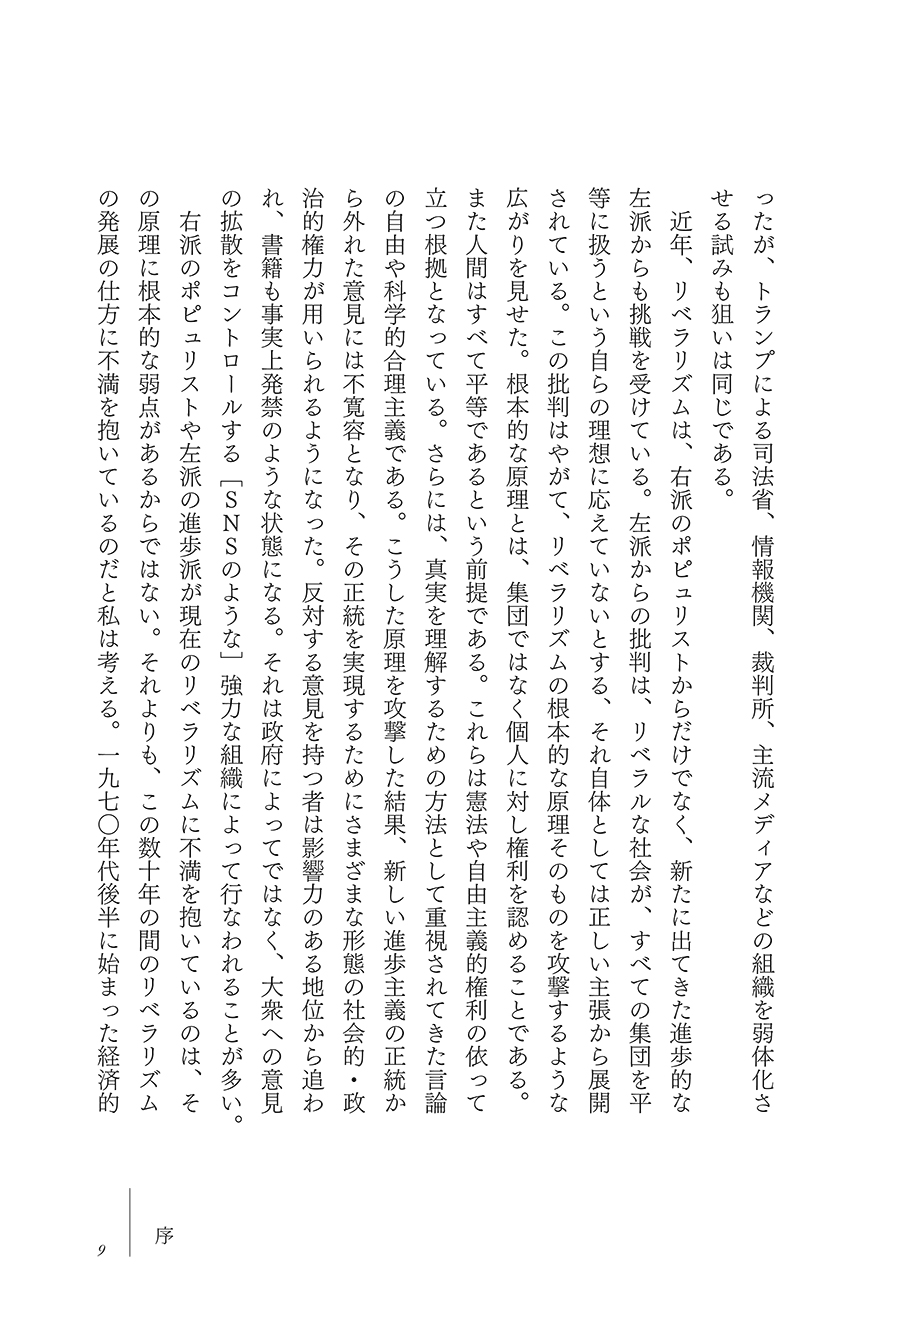 ったが、トランプによる司法省、情報機関、裁判所、主流メディアなどの組織を弱体化さ
せる試みも狙いは同じである。
近年、リベラリズムは、右派のポピュリストからだけでなく、新たに出てきた進歩的な
左派からも挑戦を受けている。左派からの批判は、リベラルな社会が、すべての集団を平
等に扱うという自らの理想に応えていないとする、それ自体としては正しい主張から展開
されている。この批判はやがて、リベラリズムの根本的な原理そのものを攻撃するような
広がりを見せた。根本的な原理とは、集団ではなく個人に対し権利を認めることである。
また人間はすべて平等であるという前提である。これらは憲法や自由主義的権利の依って
立つ根拠となっている。さらには、真実を理解するための方法として重視されてきた言論
の自由や科学的合理主義である。こうした原理を攻撃した結果、新しい進歩主義の正統か
ら外れた意見には不寛容となり、その正統を実現するためにさまざまな形態の社会的・政
治的権力が用いられるようになった。反対する意見を持つ者は影響力のある地位から追わ
れ、書籍も事実上発禁のような状態になる。それは政府によってではなく、大衆への意見
の拡散をコントロールする［ＳＮＳのような］強力な組織によって行なわれることが多い。
右派のポピュリストや左派の進歩派が現在のリベラリズムに不満を抱いているのは、そ
の原理に根本的な弱点があるからではない。それよりも、この数十年の間のリベラリズム
の発展の仕方に不満を抱いているのだと私は考える。一九七〇年代後半に始まった経済的
序
9